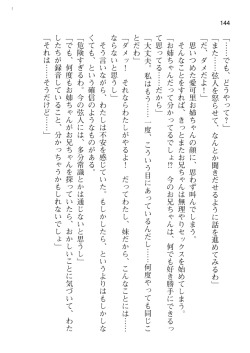 144
「……でも、どうやって?」
「また……弦人を怒らせて、なんとか聞きだせるように話を進めてみるわ」
「だ、ダメだよ!」
思いつめた愛可里お姉ちゃんの顔に、思わず叫んでしまった。
そんなことをすれば、きっとまたお兄ちゃんは無理やりセックスを始めてしまう。
「お姉ちゃんだって でしょ!? 今のお兄ちゃんは、何でも好き勝手にできる
「大丈夫、私はもう……一度、こういう目にあっているんだし……何度やっても同じこ
とだわ」
「ダメッ! それならわたしがやるよ……! だってわたし、妹だから、こんなことには……
ならないと思うし」
そう言いながら、わたしは不安を感じていた。もしかしたら、というよりはもしかしな
くても、という確信のようなものがある。
「危険すぎるわ。今の弦人には、多分常識とかは通じないと思うし」
「でも、何度もお姉ちゃんがお兄ちゃんを誘っていたら、おかしいことに気づいて、わた
したちが録音していること、分かっちゃうかもしれないでしょ」
「それは……そうだけど……」